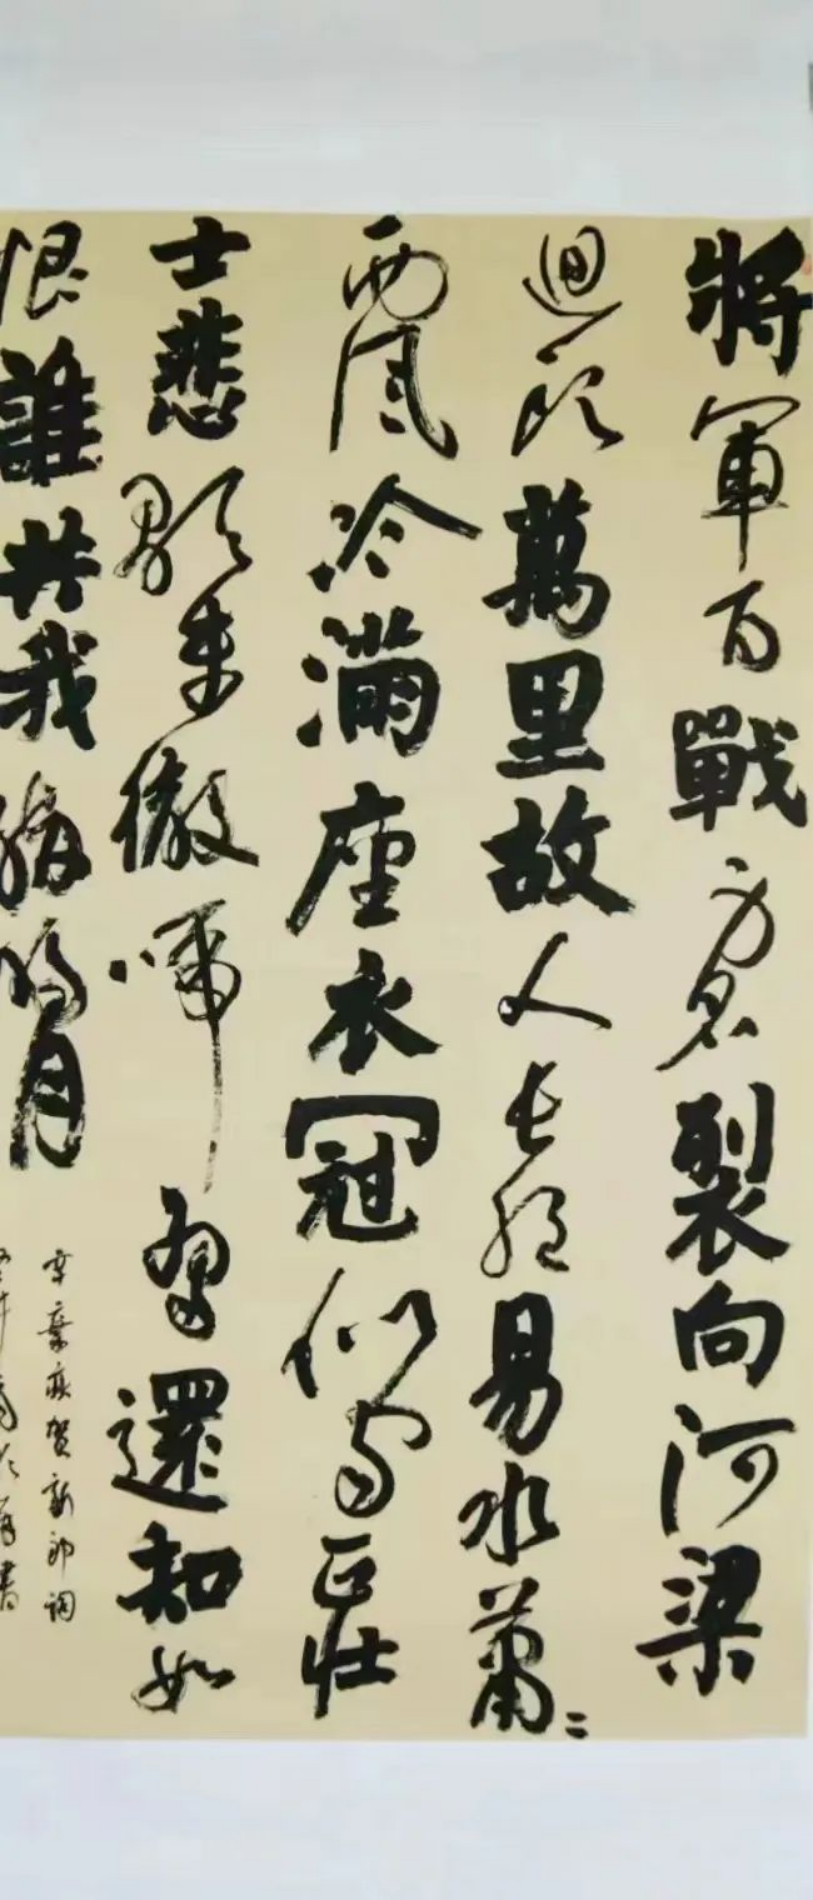 將軍百戰身名裂向河梁
迴頭萬里故人長絕易水蕭〻
西風冷滿座衣冠似雪正壯
士悲歌未徹啼鳥還知如
恨誰共我醉明月
辛棄疾賀新郎詞
書